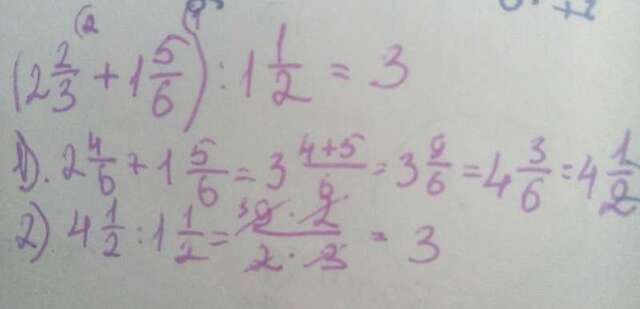 (2 2/3 + 1 5/6) : 1 1/2 = 3
1). 2 4/6 + 1 5/6 = 3 4+5/6 = 3 9/6 = 4 3/6 = 4 1/2
2) 4 1/2 : 1 1/2 = 9 · 2 / 2 · 3 = 3